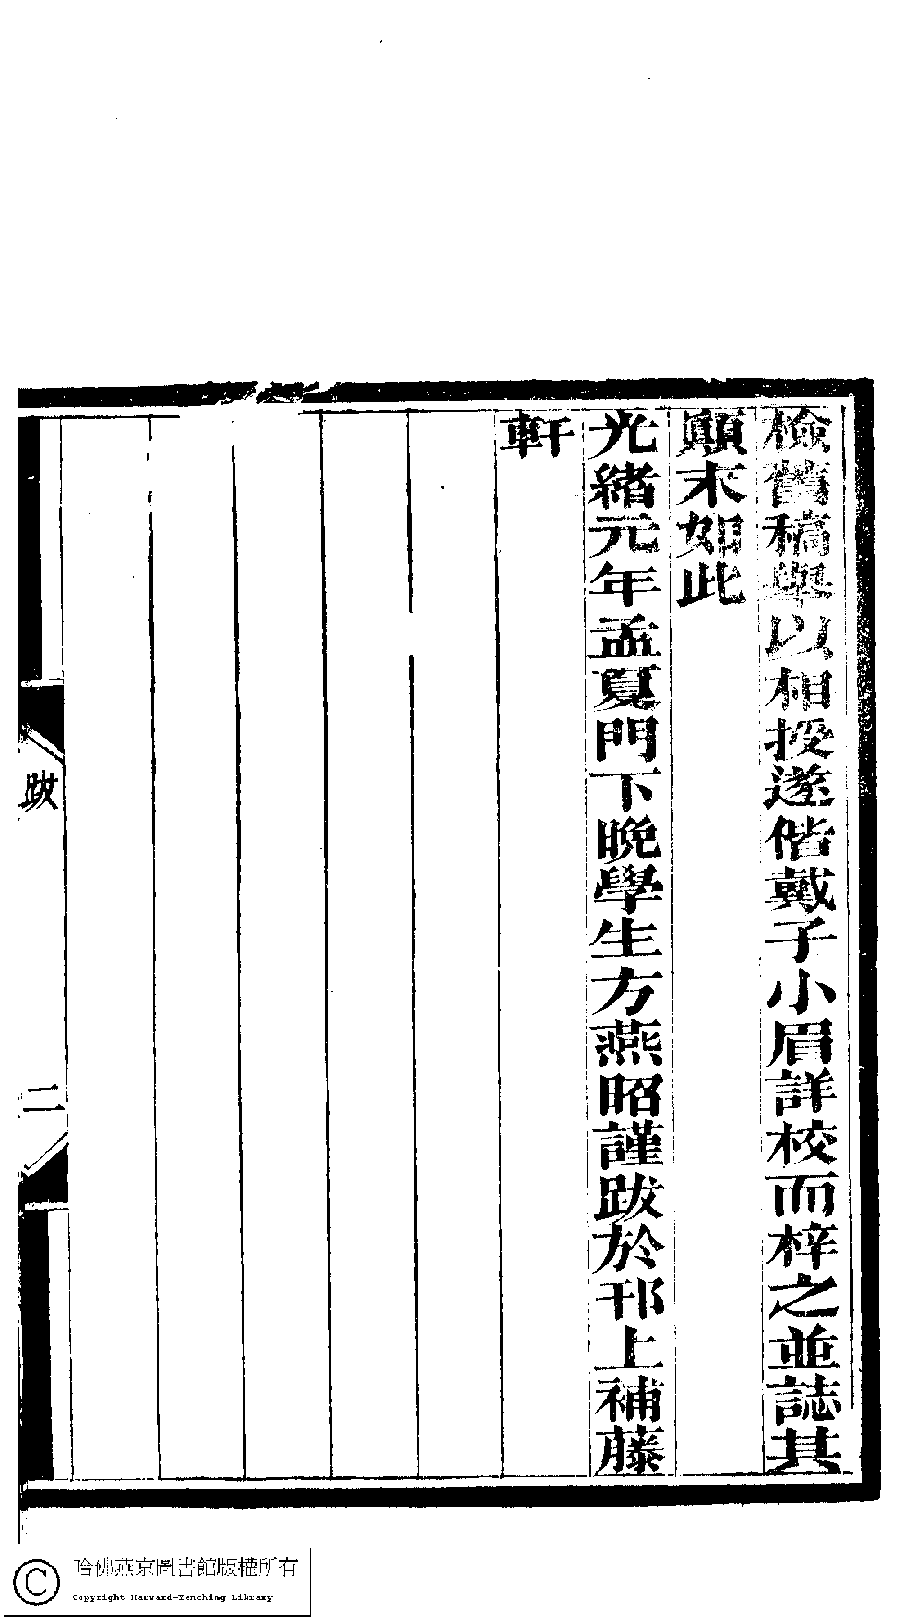 檢舊稿舉以相授遂偕戴子小眉詳校而梓之並誌其
顛末如此
光緒元年孟夏門下晚學生方燕昭謹跋於邗上補藤
軒
跋
二
哈佛燕京圖書館版權所有
Copyright Harvard-Yenching Library